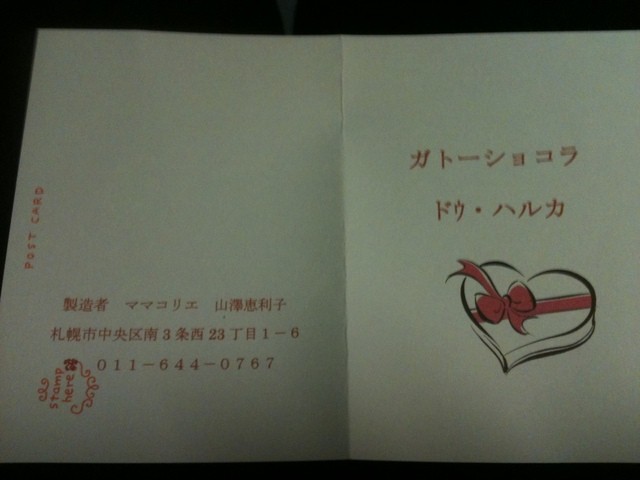 POST CARD
製造者　ママコリエ　山澤恵利子
札幌市中央区南３条西23丁目１－６
０１１－６４４－０７６７
stamp
here
ガトーショコラ
ドゥ・ハルカ